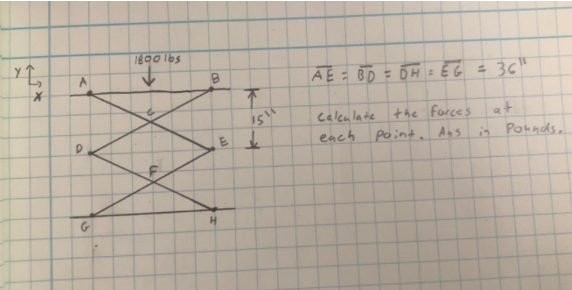 1800 lbs
Y
X
A
B
C
15"
D
E
F
G
H
AE = BD = DH = EG = 36"
Calculate the forces at
each point. Ans in Pounds.